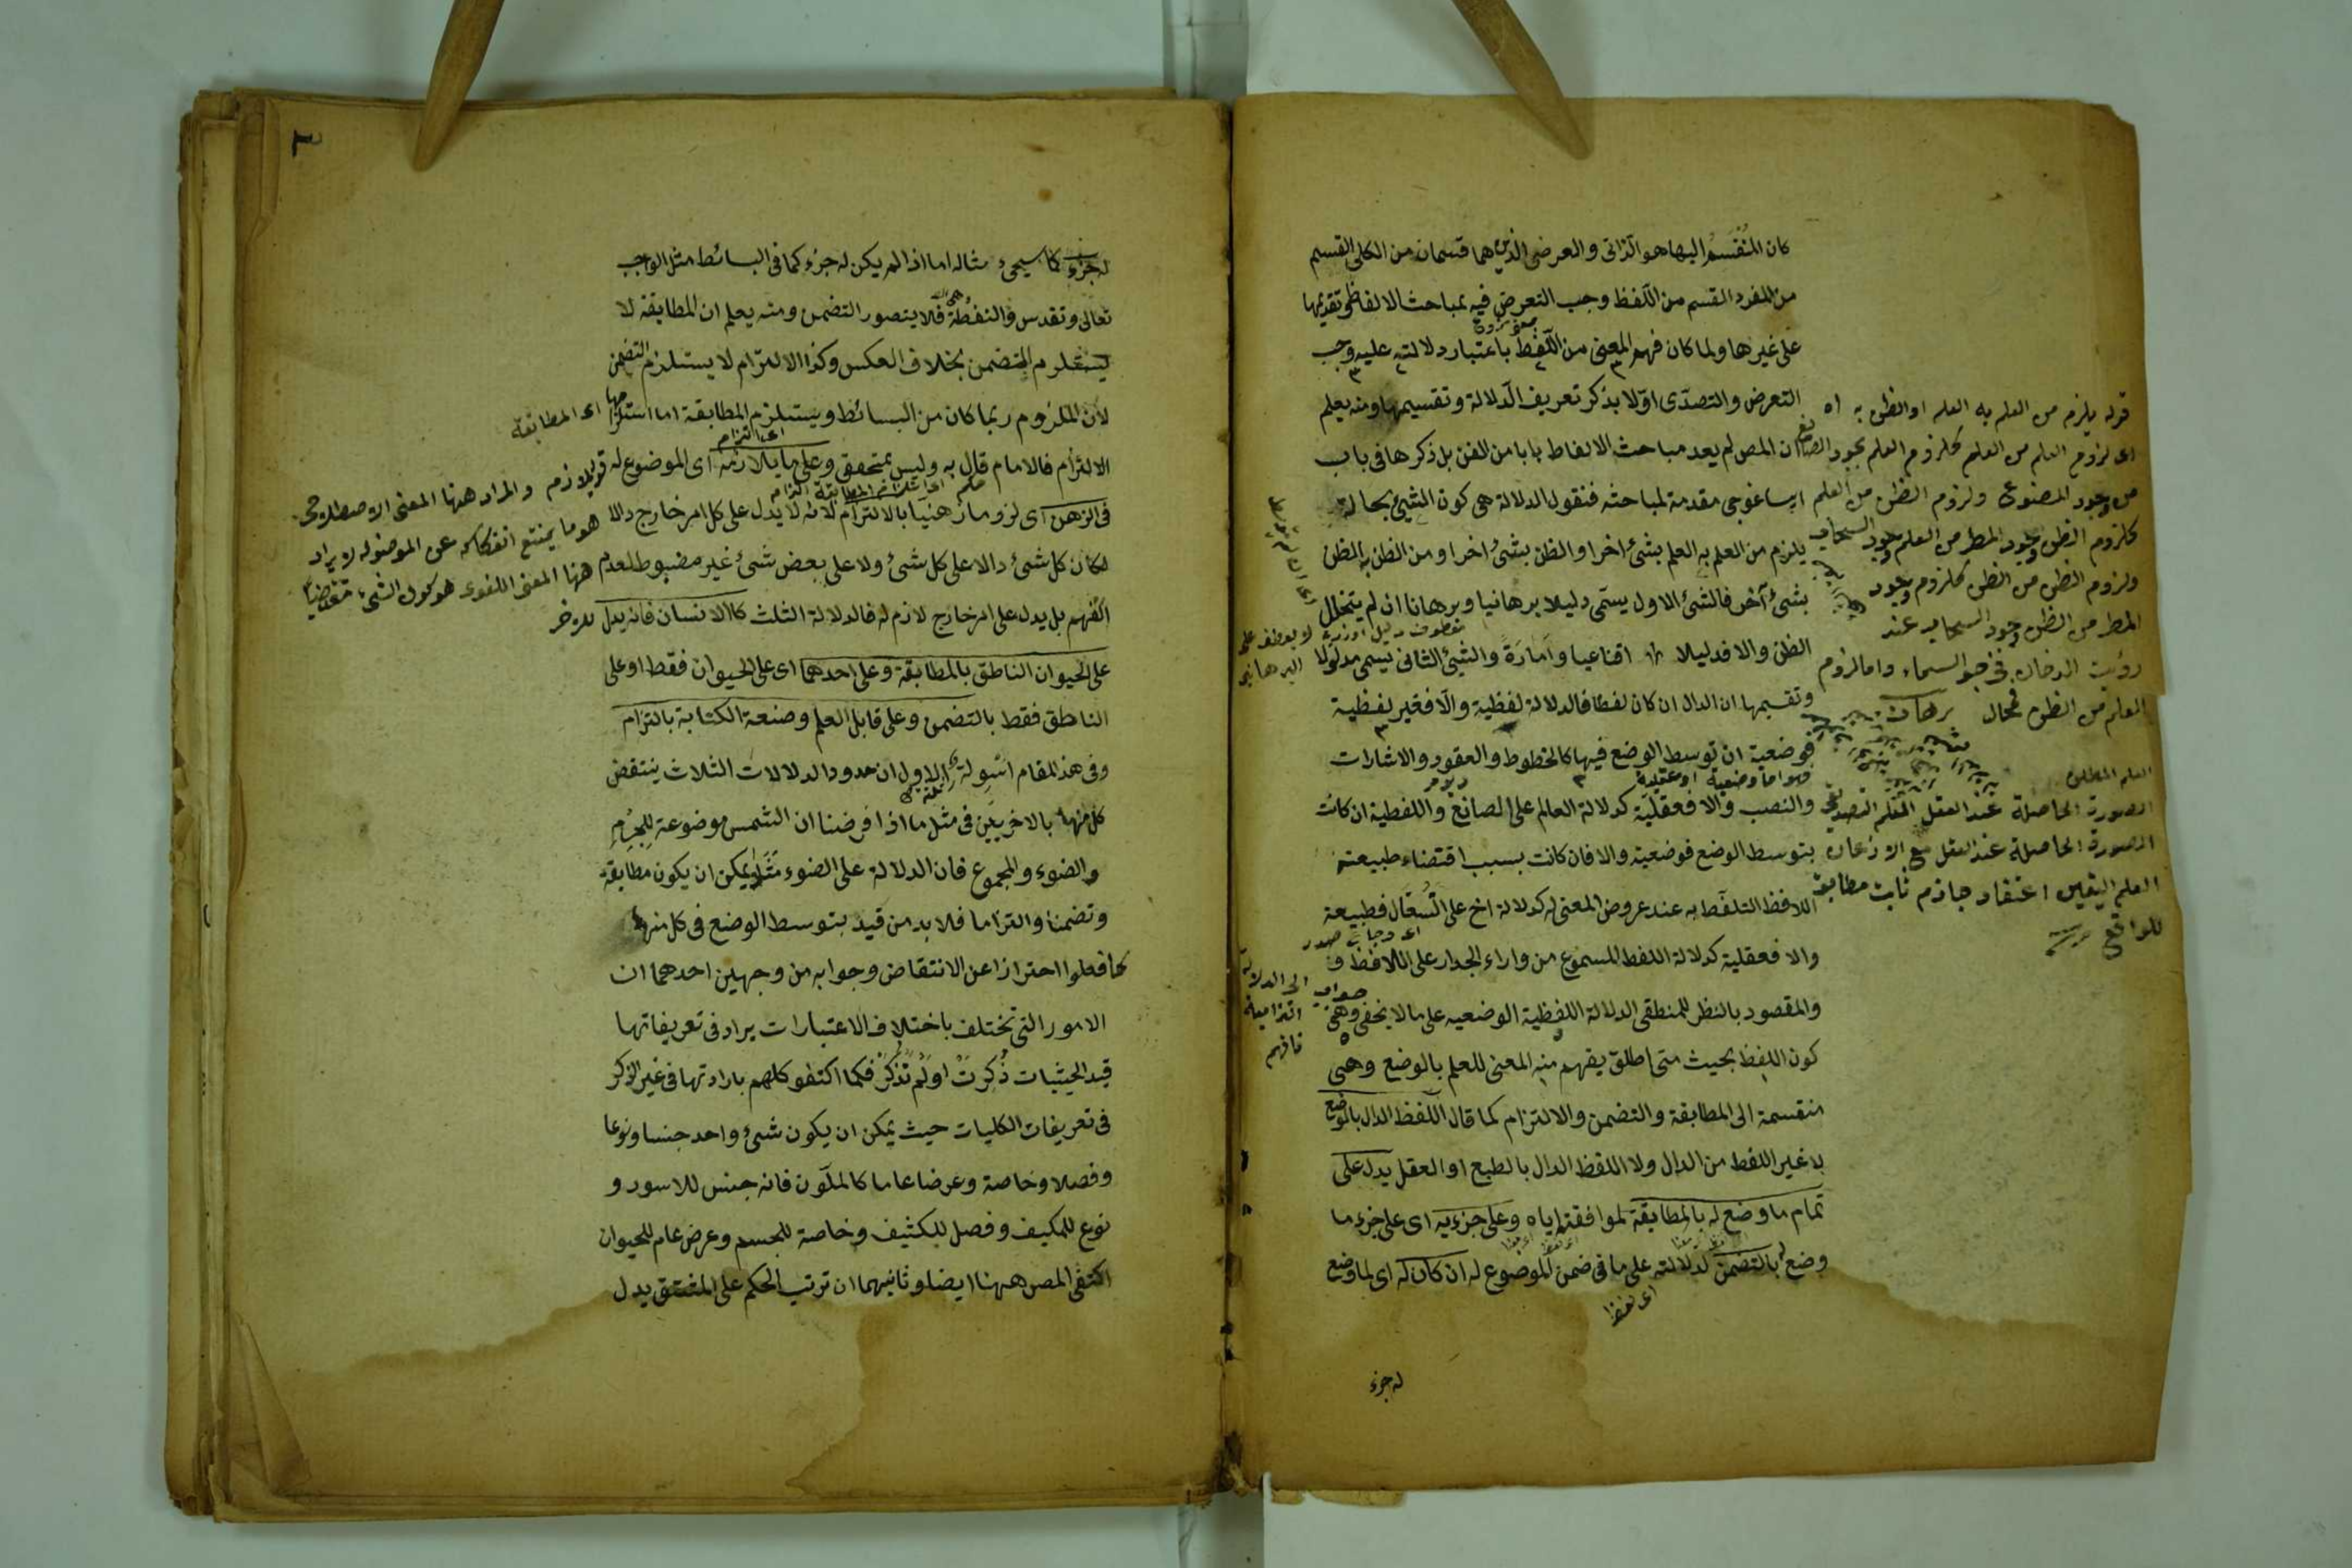 كان المنقسم اليها هو الذاتى والعرضى الذين هما قسمان من الكلى القسم
من المفرد القسم من اللفظ وجب التعرض فيه بمباحث الالفاظ وتقديمها
على غيرها ولما كان فهم المعنى من اللفظ باعتبار دلالته عليه وجب
التعرض والتصدى اولا بذكر تعريف الدلالة وتقسيمها ومنه يعلم
ان المص لم يعد مباحث الالفاط بابا من الفن بل ذكرها فى باب
ايساغوجى مقدمة لمباحثه فنقول الدلالة هى كون الشيئ بحالة
يلزم من العلم به العلم بشئ اخر او الظن بشئ اخر او من الظن به الظن
بشئ آخر فالشئ الاول يسمى دليلا برهانيا وبرهانا ان لم يتخلل
الظن والا فدليلا اقناعيا وامارة والشيئ الثانى يسمى مدلولا
وتقسيمها ان الدال ان كان لفظا فالدلالة لفظية والا فغير لفظية
فوضعية ان توسط الوضع فيها كالخطوط والعقود والاشارات
والنصب والا فعقلية كدلالة العالم على الصانع واللفظية ان كانت
بتوسط الوضع فوضعية والا فان كانت بسبب اقتضاء طبيعته
اللافظ التلفظ به عند عروض المعنى له كدلالة اخ على السعال فطبيعة
والا فعقلية كدلالة اللفظ المسموع من وراء الجدار على اللافظ
والمقصود بالنظر للمنطقى الدلالة اللفظية الوضعيه على ما لا يخفى وهى
كون اللفظ بحيث متى اطلق يفهم منه المعنى للعلم بالوضع وهى
منقسمة الى المطابقة والتضمن والالتزام كما قال اللفظ الدال بالوضع
لا غير اللفط من الدال ولا اللفظ الدال بالطبع او العقل يدل على
تمام ما وضع له بالمطابقة لموافقته اياه وعلى جزءيه اى على جزء ما
وضع له بالتضمن لدلالته على ما فى ضمن الموضوع له ان كان له اى لما وضع
له جزء
قوله يلزم من العلم به العلم او الظن به اه
اى لزوم العلم من العلم كلزوم العلم بوجود الصانع
من وجود المصنوع ولزوم الظن من العلم
كلزوم الظن وجود المطر من العلم وجود السحاب
ولزوم الظن من الظن كلزوم وجود
المطر من الظن وجود السحاب عند
رؤيت الدخان فى جو السماء واما لزوم
العلم من الظن فمحال
العلم المطلق
الصورة الحاصلة عند العقل العلم التصديقى
الصورة الحاصلة عند العقل مع الاذعان
العلم اليقين اعتقاد جازم ثابت مطابق
للواقع
له جزء كما سيجىء مثاله اما اذا لم يكن له جزء كما فى البسائط مثل الواجب
تعالى وتقدس والنقطة فلا يتصور التضمن ومنه يعلم ان المطابقة لا
يستلزم التضمن بخلاف العكس وكذا الالتزام لا يستلزم التضمن
لان الملزوم ربما كان من البسائط ويستلزم المطابقة اما استلزامها اى المطابقة
الالتزام فالامام قال به وليس بمتحقق وعلى ما يلازمه اى الموضوع له
فى الذهن اى لزوما ذهنيا بالالتزام لانه لا يدل على كل امر خارج والا
لكان كل شئ دالا على كل شئ ولا على بعض شئ غير مضبوط لعدم
الفهم بل يدل على امر خارج لازم له فالدلالة الثلث كالانسان فانه يدل
على الحيوان الناطق بالمطابقة وعلى احدهما اى على الحيوان فقط او على
الناطق فقط بالتضمن وعلى قابل العلم وصنعة الكتابة بالتزام
وفى هذ المقام اسولة الاول ان حدود الدلالات الثلاث ينتقض
كل منها بالاخريين فى مثل ما اذا فرضنا ان الشمس موضوعة للجرم
والضوء والمجموع فان الدلالة على الضوء مثلا يمكن ان يكون مطابقة
وتضمنا والتزاما فلا بد من قيد بتوسط الوضع فى كل منها
كما فعلوا احترازا عن الانتقاض وجوابه من وجهين احدهما ان
الامور التى تختلف باختلاف الاعتبارات يراد فى تعريفاتها
قيد الحيثيات ذكرت او لم تذكر فكما اكتفو كلهم بارادتها فى غير الذكر
فى تعريفات الكليات حيث يمكن ان يكون شئ واحد جنسا ونوعا
وفصلا وخاصة وعرضا عاما كالملون فانه جنس للاسود و
نوع للمكيف وفصل للكثيف وخاصة للجسم وعرض عام للحيوان
اكتفى المص ههنا ايضا وثانيهما ان ترتب الحكم على المشتق يدل
قوله يلازم والمراد ههنا المعنى الاصطلاحى
هو ما يمتنع انفكاكه عن الموضوله لا يراد
ههنا المعنى اللغوى هو كون الشئ مقتضيا